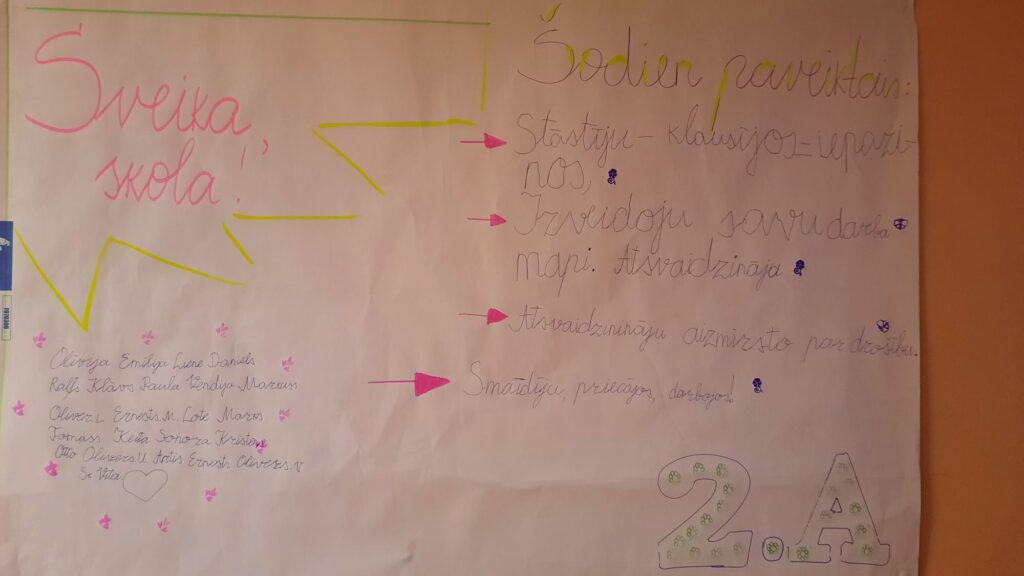 Sveika,
skola!
Olivija Emilija Luīze Daniels
Ralfs Klāvs Paula Vendija Marcuss
Olivers L Ernests M. Lote Marss
Tomass Keita Sonora Kristers
Otto Olivers U Artis Ernests Olivers.V
Sk. Vita
Šodien paveiktais:
Stāstīju - klausījos=iepazi-
nos,
Izveidoju savu darba
mapi. Atsvaidzināja
Atsvaidzinināju aizmirsto par drošību.
Smaidīju, priecājos, darbojos!
2.A